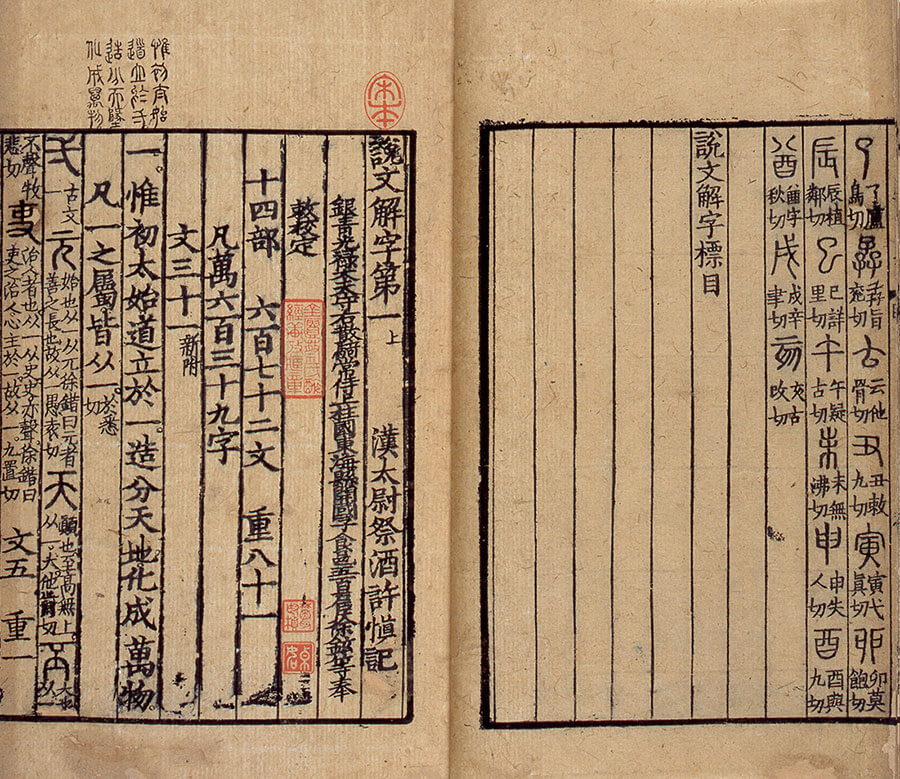 了 了盧鳥切 孨 孨旨兖切 𠫓 云他骨切 丑 丑敕九切 寅 寅弋真切 卯 卯莫飽切
辰 辰植鄰切 巳 巳詳里切 午 午疑古切 未 未無沸切 申 申失人切 酉 酉與九切
酋 酋字秋切 戌 戌辛聿切 亥 亥古改切
說文解字標目
宋本
惟初太始
道立於一
造分天地
化成萬物
說文解字第一上 漢太尉祭酒許慎記
銀青光祿大夫守右散騎常侍上柱國東海縣開國子食邑五百戶臣徐鉉等奉
敕校定
十四部 六百七十二文 重八十一
凡萬六百三十九字
文三十一新附
一。惟初太始道立於一造分天地化成萬物
凡一之屬皆从一。於悉切
弌 古文一 元 始也从一从兀徐鍇曰元者善之長也故从一愚袁切 天 顛也至高無上。从一。大。他前切 丕 大也从一
不聲 悲切 吏 治人者也从一从史史亦聲徐鍇曰吏之治人心主於一。故从一。力置切 文五 重一